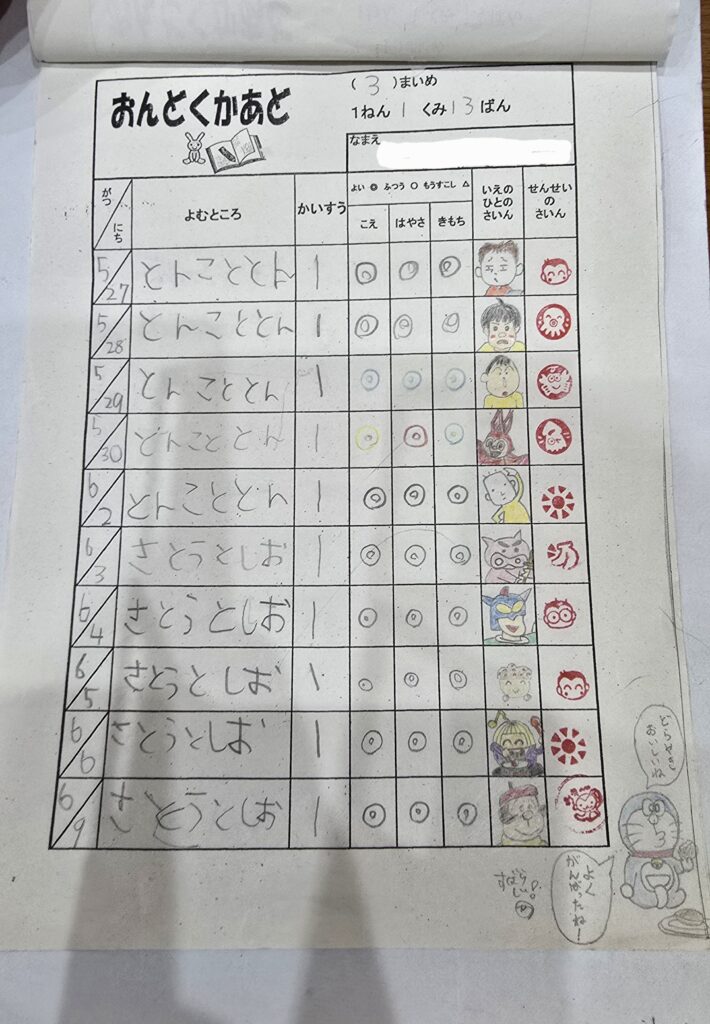 おんどくかあど
( 3 )まいめ
1ねん 1 くみ 13 ばん
なまえ
がつ/にち よむところ かいすう よい ◎ ふつう ○ もうすこし △ いえの ひとの さいん せんせい の さいん
こえ はやさ きもち
5/27 とんこととん 1 ◎ ◎ ◎
5/28 とんこととん 1 ◎ ◎ ◎
5/29 とんこととん 1 ◎ ◎ ◎
5/30 とんこととん 1 ◎ ◎ ◎
6/2 とんこととん 1 ◎ ◎ ◎
6/3 さとうとしお 1 ◎ ◎ ◎
6/4 さとうとしお 1 ◎ ◎ ◎
6/5 さとうとしお 1 ◎ ◎ ◎
6/6 さとうとしお 1 ◎ ◎ ◎
6/9 さとうとしお 1 ◎ ◎ ◎
おいしいね
よく
がんばったね!
すばら
しい!